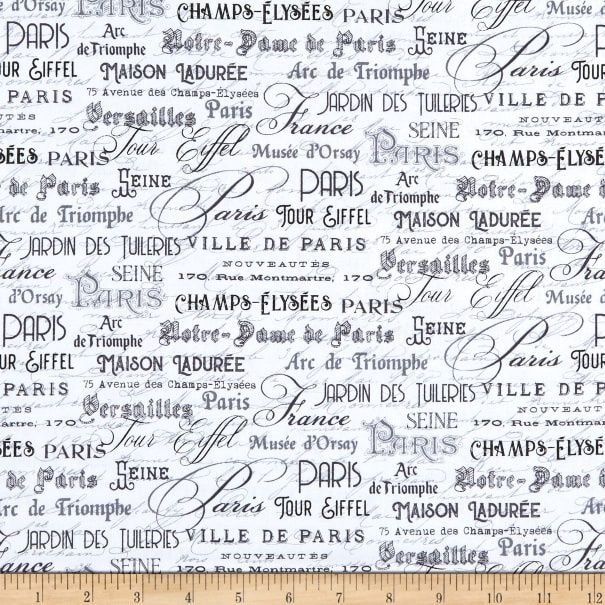 Musée d'Orsay PARIS CHAMPS-ÉLYSÉES PARIS Tour Eiffel Musée d'Orsay
PARIS Arc de Triomphe Notre-Dame de Paris SEINE Paris PARIS
TOUR EIFFEL MAISON LADURÉE Arc de Triomphe TOUR EIFFEL
PARIS 75 Avenue des Champs-Elysées Versailles Paris France JARDIN DES TUILERIES VILLE DE P
NOUVEAUTÉS
martre, 170 Tour Eiffel Musée d'Orsay SEINE PARIS 170 Rue Montmartre,
SÉES PARIS CHAMPS-ÉLYSÉES
de Paris SEINE Paris PARIS Arc de Triomphe Notre-Dame de
Arc de Triomphe TOUR EIFFEL MAISON LADURÉE
JARDIN DES TUILERIES VILLE DE PARIS 75 Avenue des Champs-Elysées Versailles Paris
France SEINE NOUVEAUTÉS
170 Rue Montmartre, 170 Tour Eiffel
d'Orsay PARIS CHAMPS-ÉLYSÉES PARIS Musée d'O
PARIS Arc de Triomphe Notre-Dame de Paris SEINE Paris PARIS
UR EIFFEL MAISON LADURÉE Arc de Triomphe TOUR EIFFEL
PARIS 75 Avenue des Champs-Elysées Versailles Paris France JARDIN DES TUILERIES VILLE DE P
NOUVEAUTÉS
martre, 170 Tour Eiffel Musée d'Orsay SEINE PARIS 170 Rue Montmartre,
SÉES PARIS CHAMPS-ÉLYSÉES
de Paris SEINE Paris PARIS Arc de Triomphe Notre-Dame de
Arc de Triomphe TOUR EIFFEL MAISON LADURÉE
JARDIN DES TUILERIES VILLE DE PARIS 75 Avenue des Champs-Elysées Versailles Paris
France SEINE NOUVEAUTÉS
170 Rue Montmartre, 170
1 2 3 4 5 6 7 8 9 10 11 12